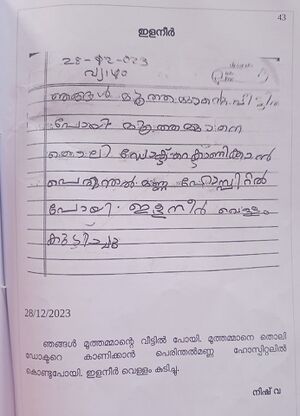 43
ഇളനീർ
28-12-2023
വ്യാഴം
ഞങ്ങൾ മുത്തമ്മാന്റെ വീട്ടിൽ
പോയി മുത്തമ്മാനെ
തൊലി ഡോക്ടറെ കാണിക്കാൻ
പെരിന്തൽമണ്ണ ഹോസ്പിറ്റിൽ
പോയി. ഇളനീർ വെള്ളം
കുടിച്ചു
28/12/2023
ഞങ്ങൾ മുത്തമ്മാന്റെ വീട്ടിൽ പോയി. മുത്തമ്മാനെ തൊലി
ഡോക്ടറെ കാണിക്കാൻ പെരിന്തൽമണ്ണ ഹോസ്പിറ്റലിൽ
കൊണ്ടുപോയി. ഇളനീർ വെള്ളം കുടിച്ചു.
നിഷ് വ